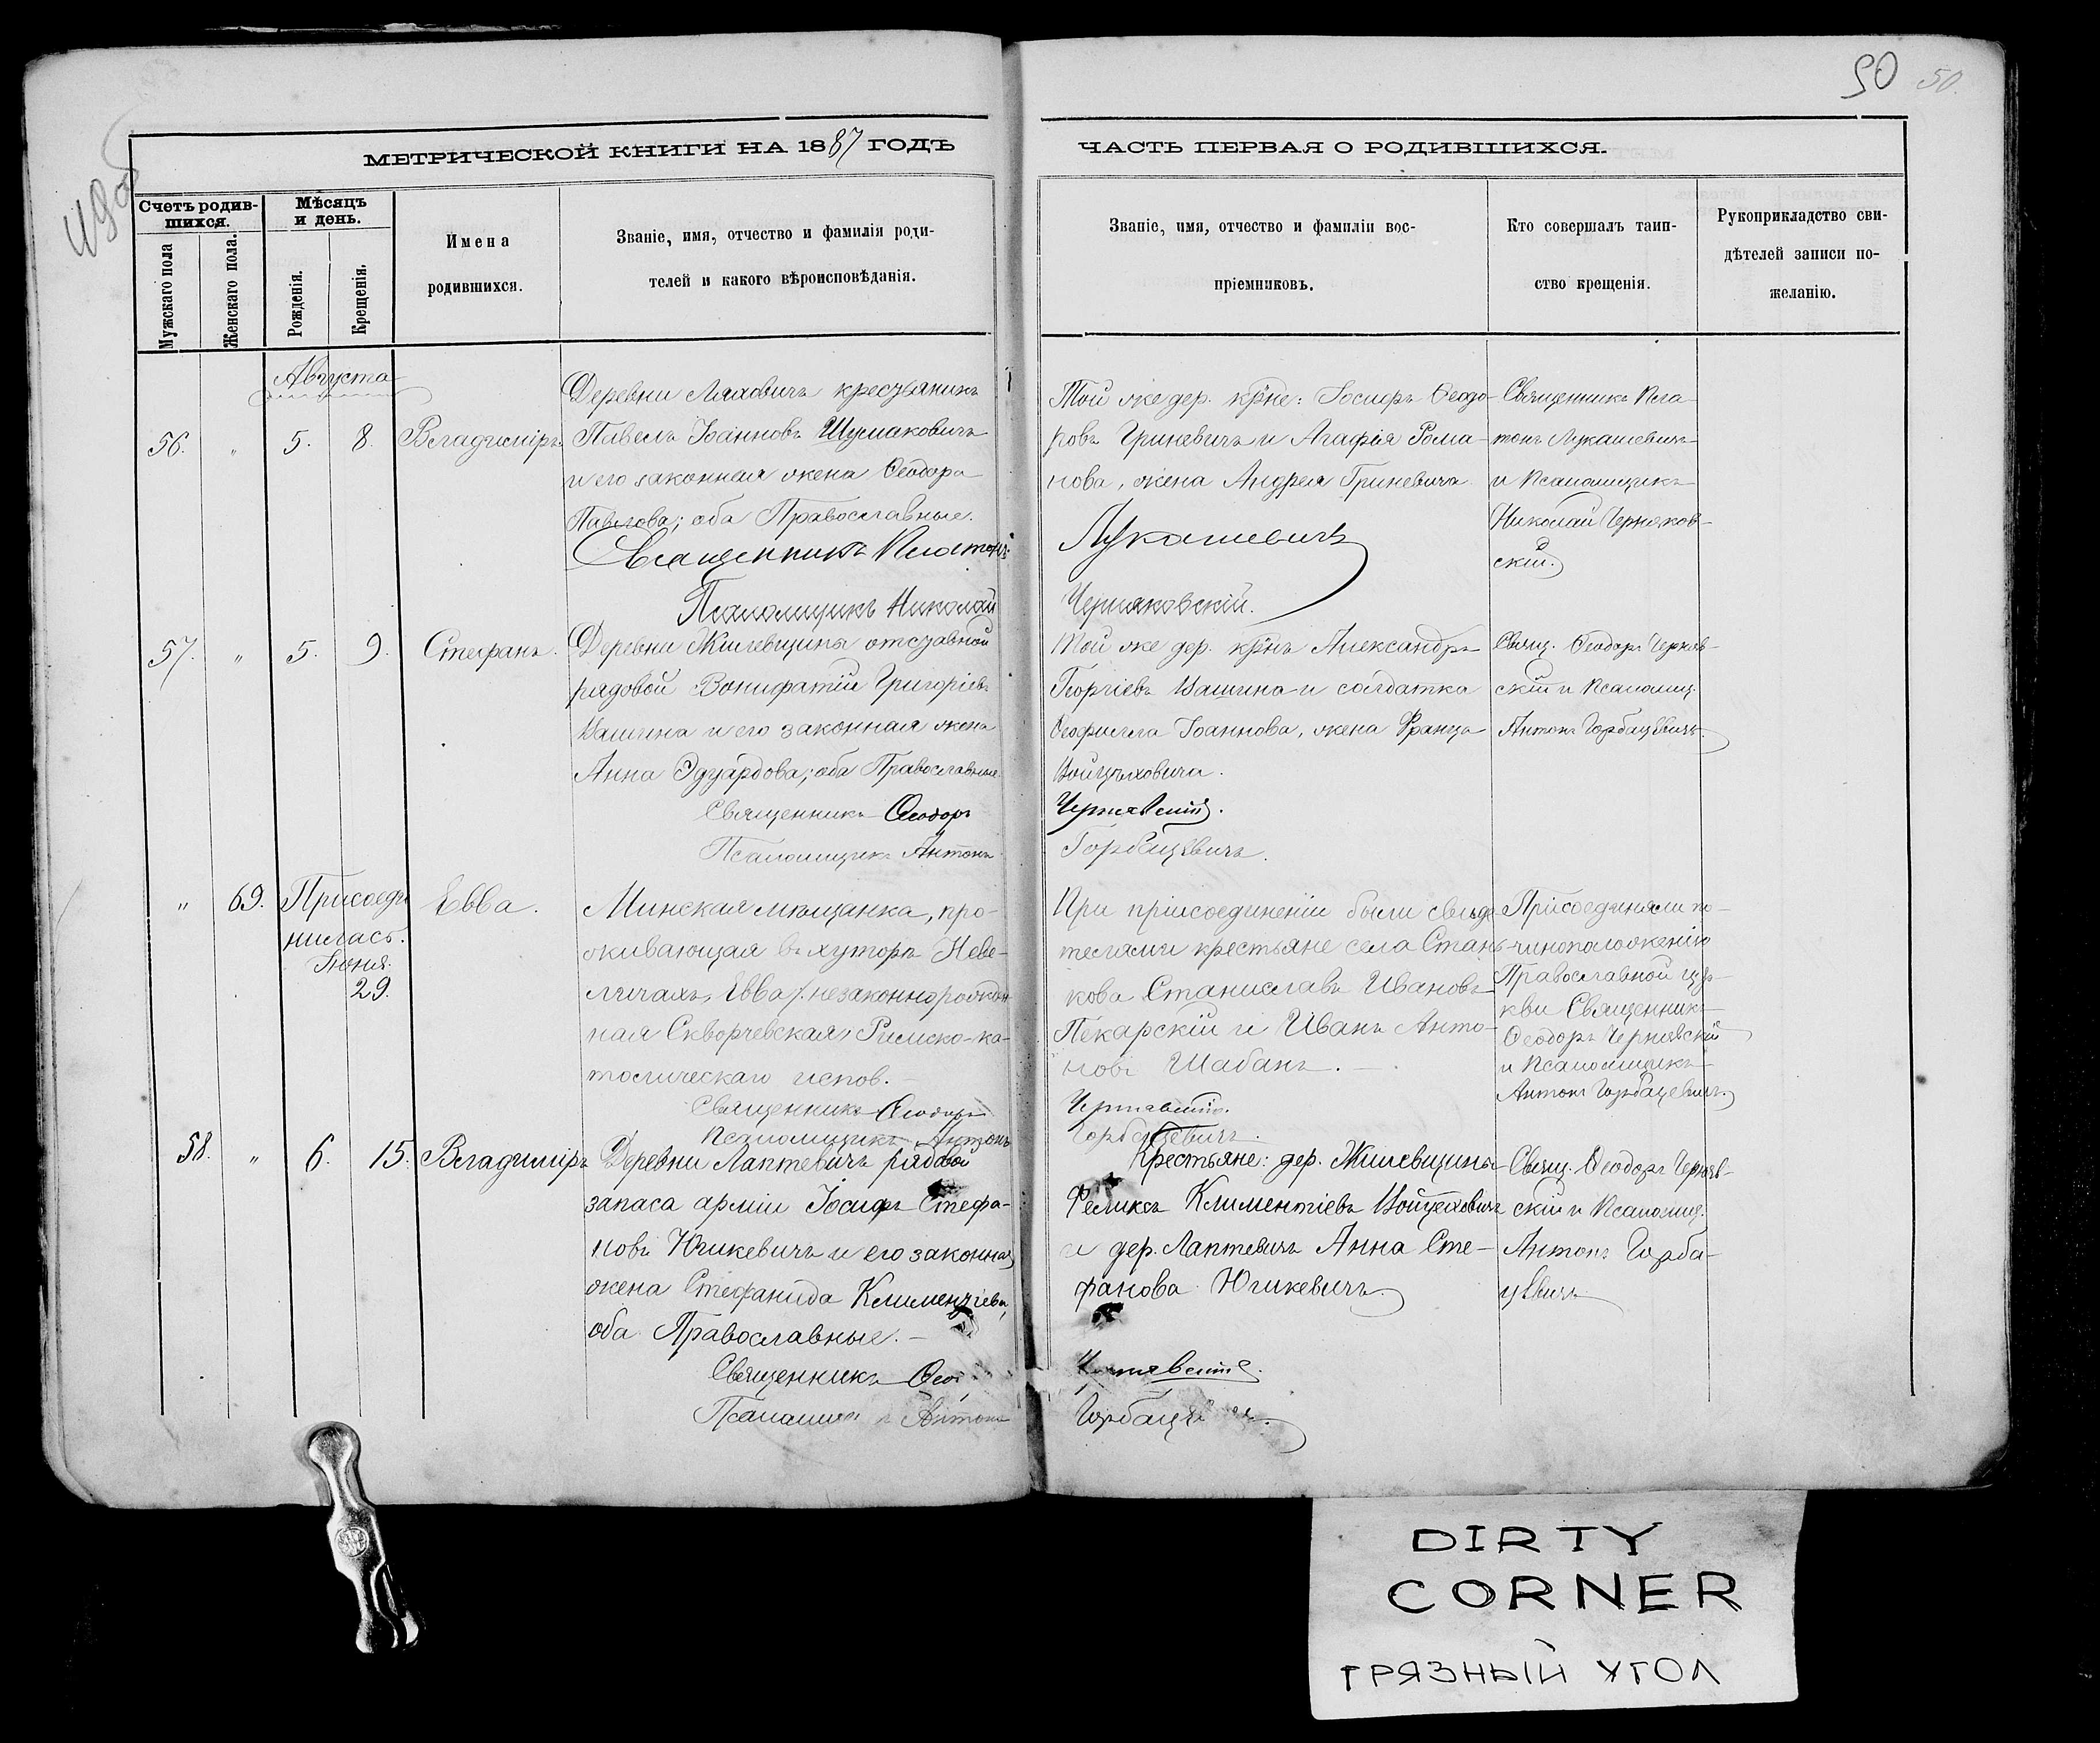 50 50.
МЕТРИЧЕСКОЙ КНИГИ НА 1887 ГОДЪ
ЧАСТЬ ПЕРВАЯ О РОДИВШИХСЯ.
Счетъ родив-
шихся.
Мужскаго пола
Женскаго пола.
Мѣсяцъ
и день.
Рожденія.
Крещенія.
Имена
родившихся.
Званіе, имя, отчество и фамилія роди-
телей и какого вѣроисповѣданія.
Званіе, имя, отчество и фамиліи вос-
пріемниковъ.
Кто совершалъ таин-
ство крещенія.
Рукоприкладство сви-
дѣтелей записи по-
желанію.
Августа
56. " 5. 8. Владиміръ
Деревни Ляховичъ крестьянинъ
Павелъ Іоанновъ Шумаковичъ
и его законная жена Ѳеодора
Павлова; оба Православные.
Священникъ Платонъ
Псаломщикъ Николай
Той же дер. кр̃не: Іосифъ Ѳеодо-
ровъ Гриневичъ и Агафія Рома-
нова, жена Андрея Гриневича
Лукашевичъ
Черняковскій.
Священникъ Пла-
тонъ Лукашевичъ
и Псаломщикъ
Николай Черняков-
скій.
57. " 5. 9. Стефанъ.
Деревни Жилевщины отставной
рядовой Вонифатій Григоріевъ
Вашина и его законная жена
Анна Эдуардова; оба Православные.
Священникъ Ѳеодоръ
Псаломщикъ Антонъ
Той же дер. кр̃нъ Александръ
Георгіевъ Вашина и солдатка
Ѳеофилла Іоаннова, жена Франца
Войцѣховича.
Чернявскій.
Горбацевичъ.
Свящ. Ѳеодоръ Черняв-
скій и Псаломщ.
Антонъ Горбацевичъ
" 69. Присоеди
нилась.
Іюня.
29.
Евва.
Минская мѣщанка, про-
живающая въ хуторѣ Неве-
личахъ, Евва / незаконнорожден
ная Скворчевская, Римско-ка-
толическаго испов.
Священникъ Ѳеодоръ
Псаломщикъ Антонъ
При присоединеніи были свидѣ-
телями крестьяне села Стань-
кова Станиславъ Ивановъ
Пекарскій и Иванъ Анто-
новъ Шабанъ.
Чернявскій.
Горбацевичъ.
Присоединяли по
чиноположенію
Православной цер-
кви Священникъ
Ѳеодоръ Чернявскій
и Псаломщикъ
Антонъ Горбацевичъ.
58. " 6. 15. Владиміръ
Деревни Лаптевичъ рядовой
запаса арміи Іосифъ Стефа-
новъ Юшкевичъ и его законная
жена Стефанида Климентіева,
оба Православные.
Священникъ
Антонъ
Крестьяне: дер. Жилевщины
Феликсъ Климентіевъ Войцеховичъ
и дер. Лаптевичъ Анна Сте-
фанова Юшкевичъ.
Чернявскій.
Свящ. Ѳеодоръ Черняв-
скій и Псаломщ.
Антонъ Горба-
цевичъ
DIRTY
CORNER
ГРЯЗНЫЙ УГОЛ